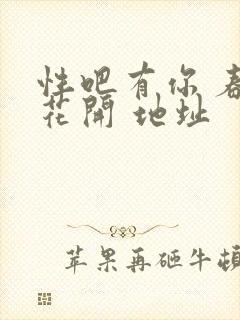 性吧有你 春
花開 地址
苹果再砸牛頓